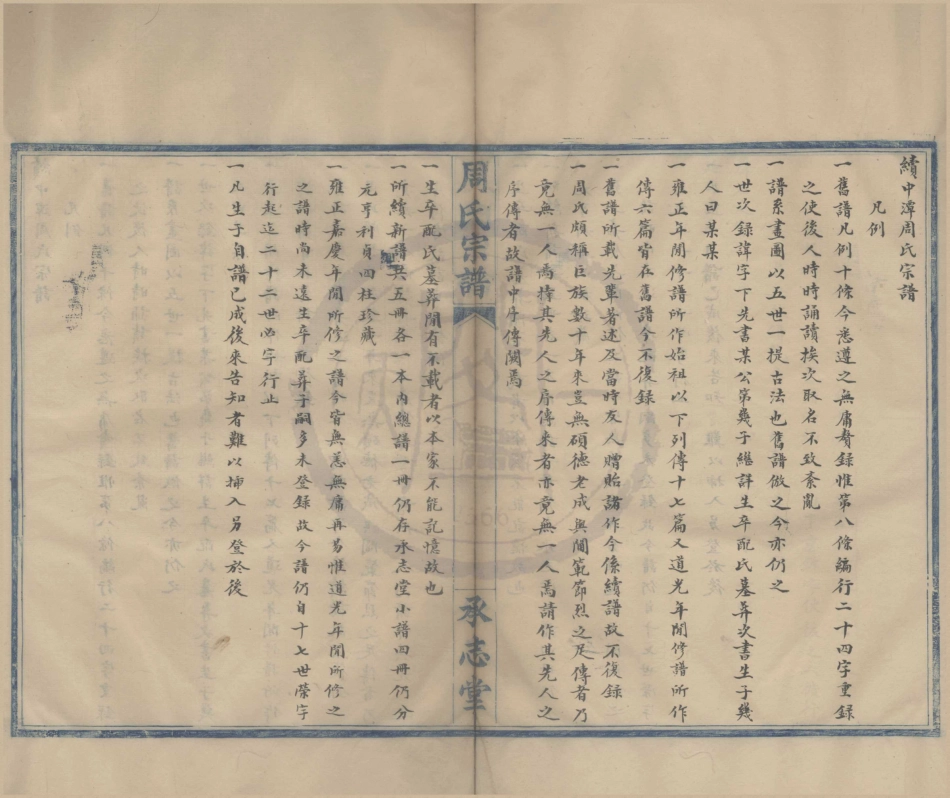 續中潭周氏宗譜
凡例
一舊譜凡例十條今悉遵之無庸贅錄惟第八條編行二十四字重錄
之使後人時時誦讀挨次取名不致紊亂
一譜系畫圖以五世一提古法也舊譜倣之今亦仍之
一世次錄諱字下先書某公第幾子繼詳生卒配氏墓葬次書生子幾
人曰某某
一雍正年閒修譜所作始祖以下列傳十七篇又道光年閒修譜所作
傳六篇皆在舊譜今不復錄
一舊譜所載先輩著述及當時友人贈貽諸作今係續譜故不復錄
一周氏頗稱巨族數十年來豈無碩德老成與閫範節烈之足傳者乃
竟無一人焉持其先人之序傳來者亦竟無一人焉請作其先人之
序傳者故譜中序傳闕焉
周氏宗譜
承志堂
一生卒配氏墓葬閒有不載者以本家不能記憶故也
一所續新譜共五冊各一本內總譜一冊仍存承志堂小譜四冊仍分
元亨利貞四柱珍藏
一雍正嘉慶年閒所修之譜今皆無恙無庸再易惟道光年閒所修之
之譜時尚未遠生卒配葬子嗣多未登錄故今譜仍自十七世榮字
行起迄二十二世必字行止
一凡生于自譜已成後來告知者難以挿入另登於後